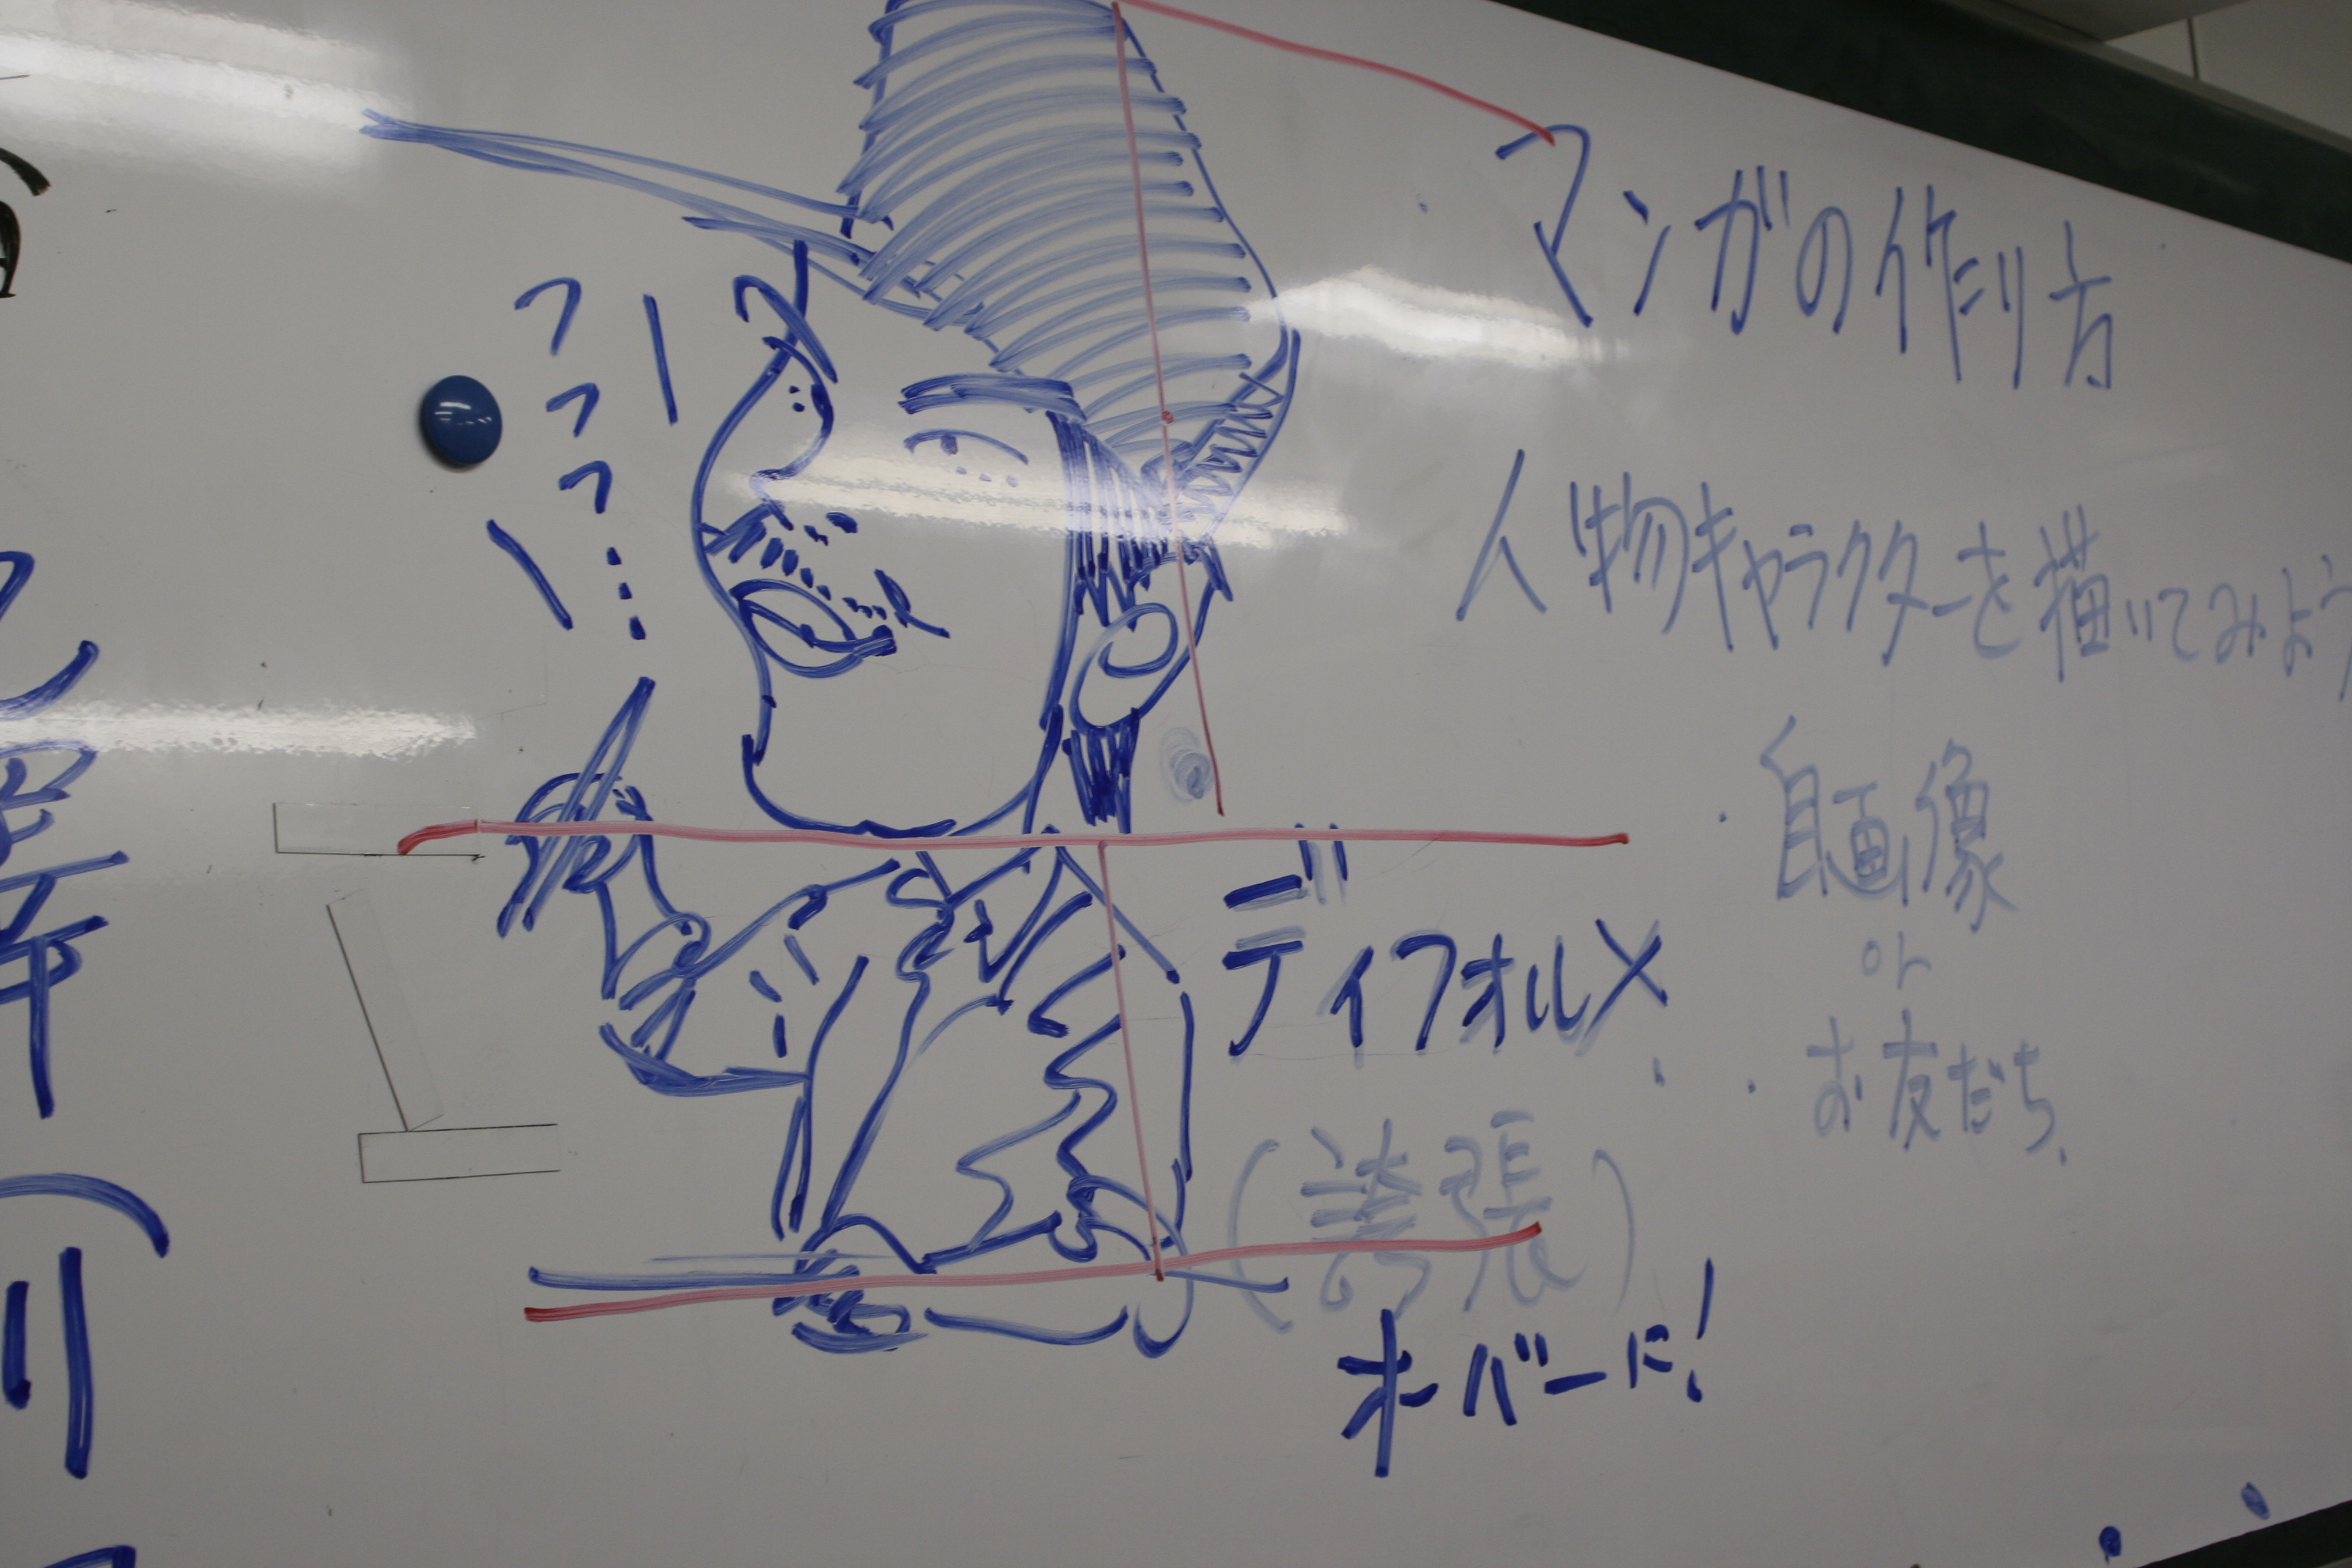 マンガの作り方
人物キャラクターを描いてみよう
・自画像
or
・お友だち
ディフォルメ
(誇張)
オーバーに!